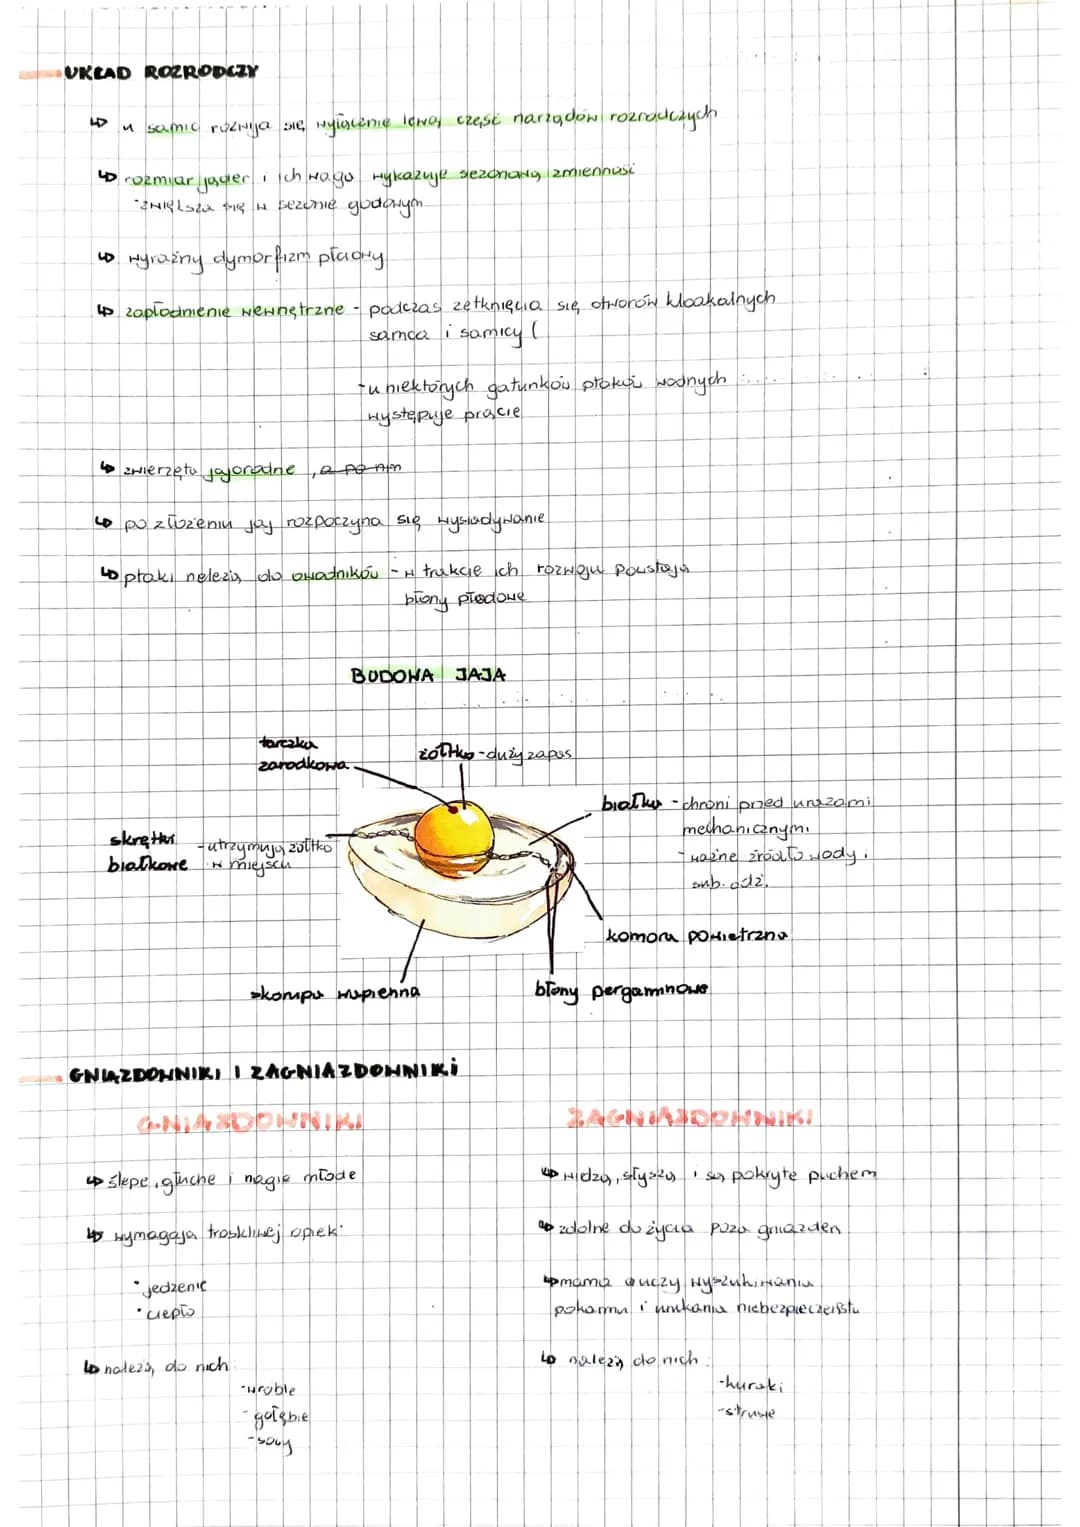 UKŁAD ROZRODCZY
↳ u samic rozwija się wyłącznie lewa część narządów rozrodczych
↳ rozmiar jąder i ich waga wykazuje sezonową zmienność
·zwiększa się w sezonie godowym
↳ wyraźny dymorfizm płciowy
↳ zapłodnienie wewnętrzne - podczas zetknięcia się otworów kloakalnych
samca i samicy (
-u niektórych gatunków ptaków wodnych
występuje prącie
↳ zwierzęta jajorodne , a po nim
↳ po złożeniu jaj rozpoczyna się wysiadywanie
↳ ptaki należą do owodników - w trakcie ich rozwoju powstają
błony płodowe
BUDOWA JAJA
tarczka
zarodkowa
żółtko - duży zapas
białko - chroni przed urazami
mechanicznymi
- ważne źródło wody i
sub. odż.
skrętki
białkowe
- utrzymują żółtko
w miejscu
komora powietrzna
skorupa wapienna
błony pergaminowe
GNIAZDOWNIKI I ZAGNIAZDOWNIKI
GNIAZDOWNIKI
↳ ślepe, głuche i nagie młode
↳ wymagają troskliwej opieki
· jedzenie
· ciepło
↳ należą do nich:
-wróble
- gołębie
-sowy
ZAGNIAZDOWNIKI
↳ widzą, słyszą i są pokryte puchem
↳ zdolne do życia poza gniazdem
↳ mama uczy wyszukiwania
pokarmu i unikania niebezpieczeństw
↳ należą do nich:
-kuraki
-strusie